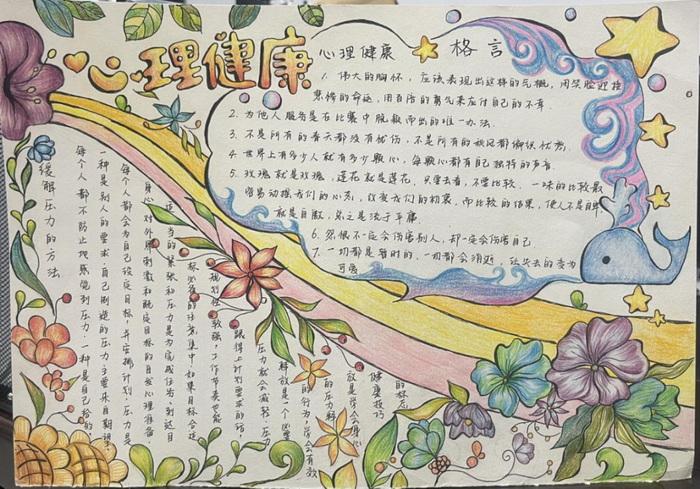 心理健康
心理健康 格言
1. 伟大的胸怀，应该表现出这样的气概，用笑脸迎接
悲惨的命运，用百倍的勇气来应付自己的不幸.
2. 为他人服务是在比赛中脱颖而出的唯一办法.
3. 不是所有的春天都没有忧伤，不是所有的秋风都
4. 世界上有多少人就有多少颗心，每颗心都有自己独特的声音.
5. 玫瑰就是玫瑰，莲花就是莲花，只要去看，不要比较. 一味的比较最
容易动摇我们的心志，改变我们的初衷，而比较的结果，使人不是自卑
就是自傲，总之是流于平庸
6. 怨恨不一定会伤害别人，却一定会伤害自己
7. 一切都是暂时的，一切都会消逝 让失去的变为
可爱
缓解压力的方法
每个人都不防止地感觉到压力，一种是自己给的
一种是别人的要求，自己制造的压力主要来自期望，
每个人都会为自己设定目标，并安排计划，压力是
身心对外界刺激和既定目标的自然心理准备，
适当的紧张和压力是为完成任务、到达目
标必备的，
集中，如果目标合适
规划性较强，工作节奏也能
跟得上计划要求的话，
压力就会减轻，压力
释放是一个必要
的行为，没有有效
的压力释
放是
健康技巧